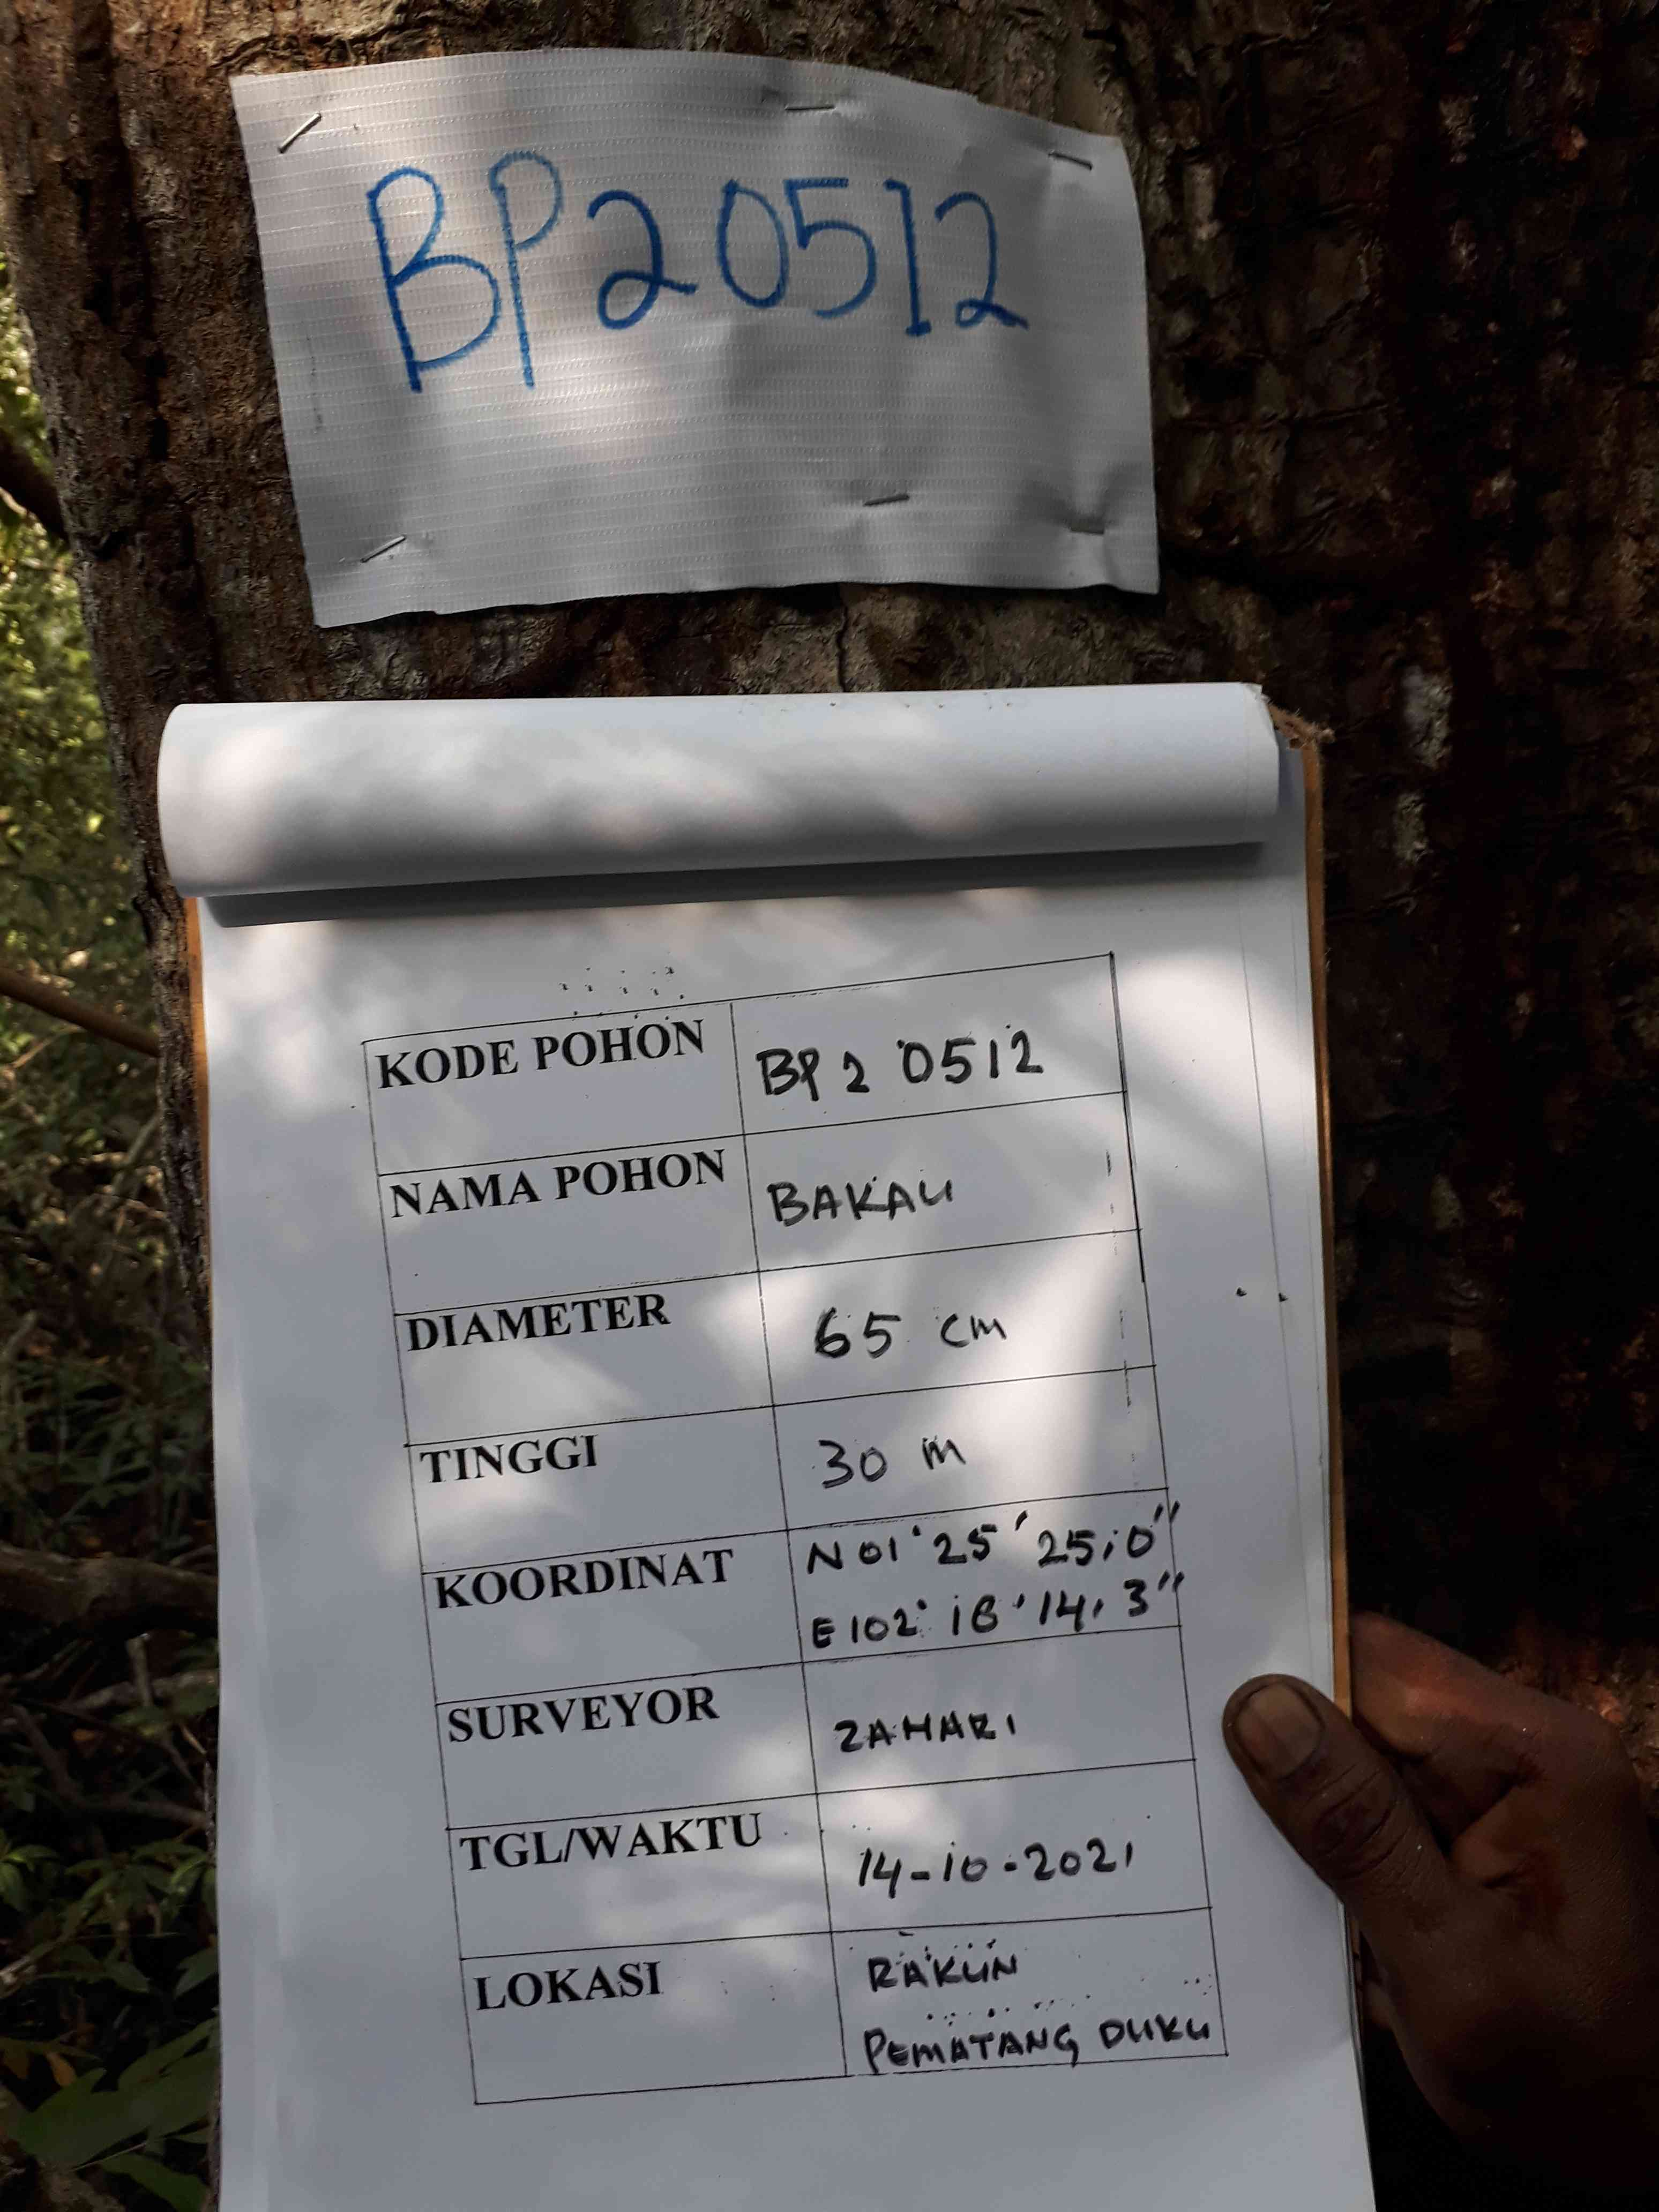 BP20512
KODE POHON BP2 0512
NAMA POHON BAKAU
DIAMETER 65 cm
TINGGI 30 m
KOORDINAT N 01° 25' 25,0"
E 102° 18' 14,3"
SURVEYOR ZAHARI
TGL/WAKTU 14-10-2021
LOKASI RAKUN
PEMATANG DUKU